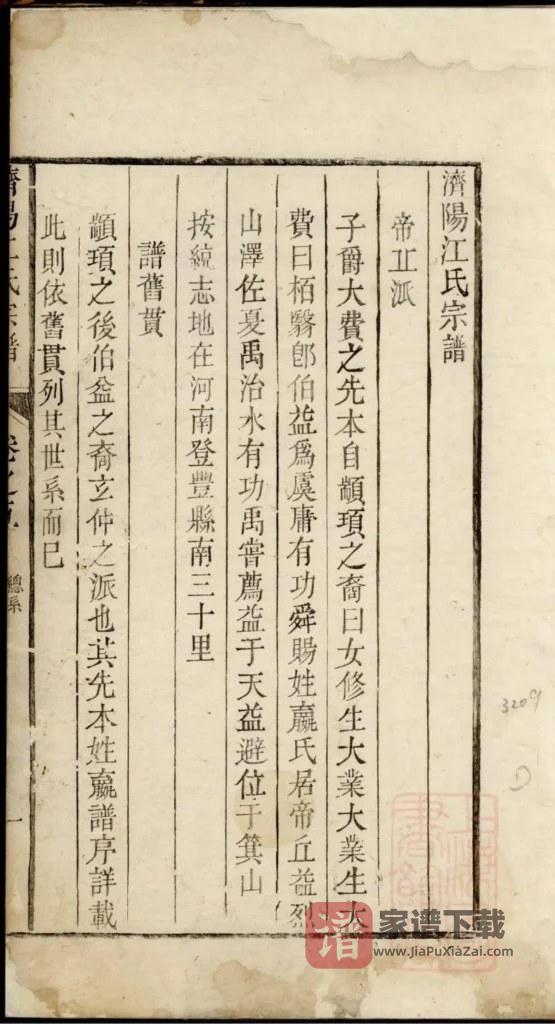 濟陽江氏宗譜
帝丘派
子爵大費之先本自顓頊之裔曰女修生大業大業生大
費曰栢翳卽伯益爲虞庸有功舜賜姓嬴氏居帝丘益烈
山澤佐夏禹治水有功禹嘗薦益于天益避位于箕山
按統志地在河南登豐縣南三十里
譜舊貫
顓頊之後伯益之裔玄仲之派也其先本姓嬴譜序詳載
此則依舊貫列其世系而已
濟陽江氏宗譜
卷之九
總系
一
3209
譜
家谱下载
www.JiaPuXiaZai.com